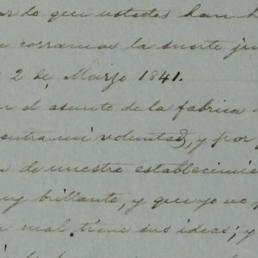 do que ustedes han
corramos la suerte
2 de Marzo 1841.
el asunto de la fabrica
contra mi voluntad, y por
de nuestro establecimie
muy brillante, y que yo
mal. tiene sus ideas; y